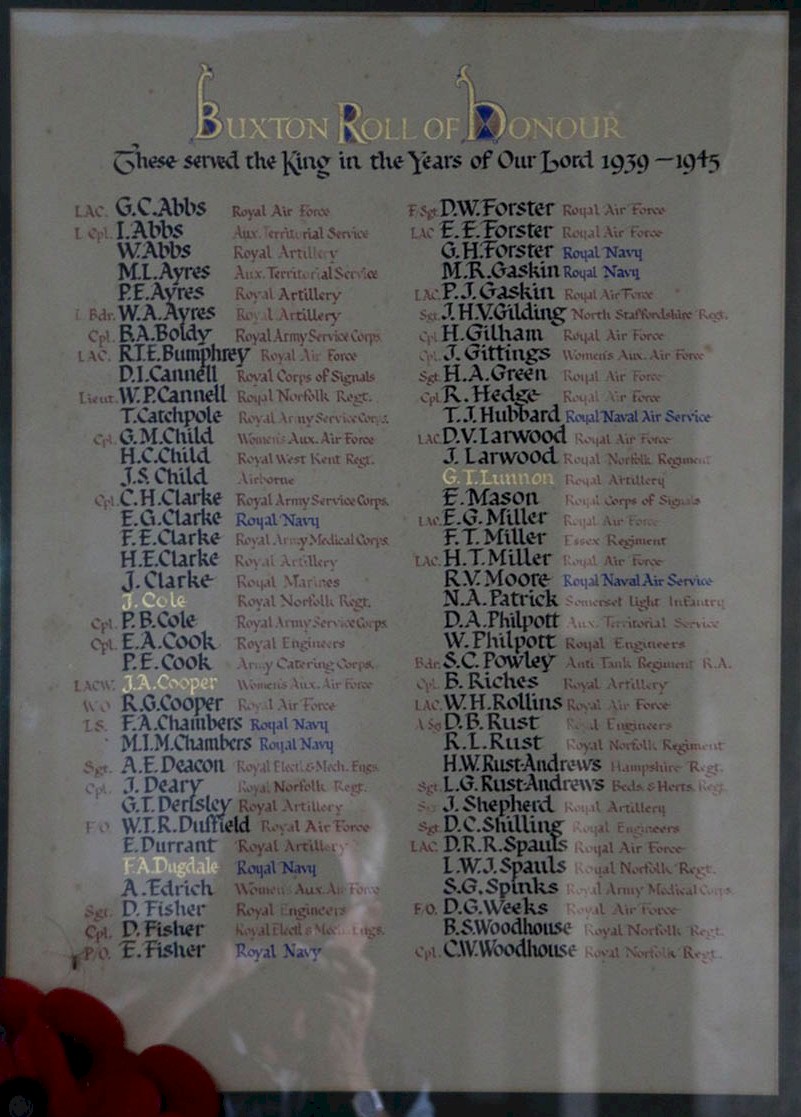 BUXTON ROLL OF HONOUR
These served the King in the Years of Our Lord 1939 – 1945
LAC. G.C. Abbs Royal Air Force
L Cpl. I. Abbs Aux. Territorial Service
W. Abbs Royal Artillery
M.L. Ayres Aux. Territorial Service
P.E. Ayres Royal Artillery
L Bdr. W.A. Ayres Royal Artillery
Cpl. B.A. Boldy Royal Army Service Corps.
LAC. R.T.E. Bumphrey Royal Air Force
D.I. Cannell Royal Corps of Signals
Lieut. W.P. Cannell Royal Norfolk Regt.
T. Catchpole Royal Army Service Corps.
Cpl. G.M. Child Women's Aux. Air Force
H.C. Child Royal West Kent Regt.
J.S. Child Airborne
Cpl. C.H. Clarke Royal Army Service Corps.
E.G. Clarke Royal Navy
F.E. Clarke Royal Army Medical Corps.
H.E. Clarke Royal Artillery
J. Clarke Royal Marines
J. Cole Royal Norfolk Regt.
Cpl. P.B. Cole Royal Army Service Corps
Cpl. E.A. Cook Royal Engineers
P.E. Cook Army Catering Corps.
LACW. J.A. Cooper Women's Aux. Air Force
W O R.G. Cooper Royal Air Force
L.S. F.A. Chambers Royal Navy
M.I.M. Chambers Royal Navy
Sgt. A.E. Deacon Royal Elect.& Mech. Engs.
Cpl. J. Deary Royal Norfolk Regt.
G.T. Dertsley Royal Artillery
F O. W.T.R. Duffield Royal Air Force
E. Durrant Royal Artillery
F.A. Dugdale Royal Navy
A. Edrich Women's Aux. Air Force
Sgt. D. Fisher Royal Engineers
Cpl. D. Fisher Royal Elect & Mech. Engs.
P/O. E. Fisher Royal Navy
F Sgt. D.W. Forster Royal Air Force
LAC E.E. Forster Royal Air Force
G.H. Forster Royal Navy
M.R. Gaskin Royal Navy
LAC. P.J. Gaskin Royal Air Force
Sgt. J.H.V. Gilding North Staffordshire Regt.
Cpl H. Gilham Royal Air Force
Cpl. J. Gittings Women's Aux. Air Force
Sgt. H.A. Green Royal Air Force
Cpl. R. Hedge Royal Air Force
T.J. Hubbard Royal Naval Air Service
LAC. D.V. Larwood Royal Air Force
J. Larwood Royal Norfolk Regiment
G.T. Lunnon Royal Artillery
E. Mason Royal Corps of Signals
LAC. E.G. Miller Royal Air Force
F.T. Miller Essex Regiment
LAC. H.T. Miller Royal Air Force
R.V. Moore Royal Naval Air Service
N.A. Patrick Somerset Light Infantry
D.A. Philpott Aux. Territorial Service
W. Philpott Royal Engineers
Bdr. S.C. Powley Anti Tank Regiment R.A.
Cpl. B. Riches Royal Artillery
LAC. W.H. Rollins Royal Air Force
D.B. Rust Royal Engineers
R.L. Rust Royal Norfolk Regiment
H.W. Rust-Andrews Hampshire Regt.
Sgt. L.G. Rust-Andrews Beds. & Herts. Regt.
J. Shepherd Royal Artillery
Sgt. D.C. Shilling Royal Engineers
LAC. D.R.R. Spauls Royal Air Force
L.W.J. Spauls Royal Norfolk Regt.
S.G. Spinks Royal Army Medical Corps.
F/O. D.G. Weeks Royal Air Force
B.S. Woodhouse Royal Norfolk Regt.
Cpl. C.W. Woodhouse Royal Norfolk Regt.